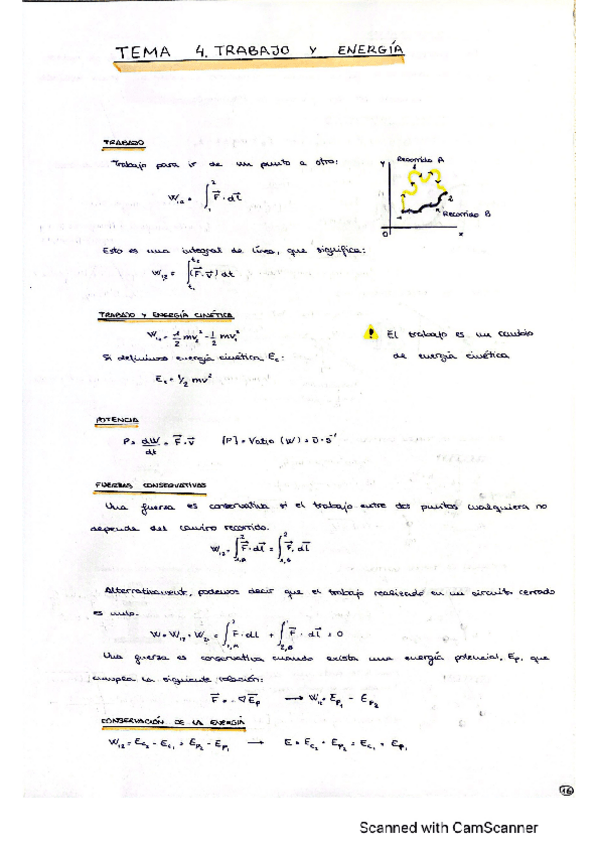 TEMA 4. TRABAJO Y ENERGÍA
TRABAJO
Trabajo para ir de un punto a otro:
W₁₂ = ∫₁² F⃗ · dl⃗
Y
Recorrido A
1
2
Recorrido B
O
x
Esto es una integral de línea, que significa:
W₁₂ = ∫_{t₁}^{t₂} (F⃗ · v⃗) dt
TRABAJO Y ENERGÍA CINÉTICA
W₁₂ = 1/2 mv² - 1/2 mv₁²
! El trabajo es un cambio
de energía cinética
Si definimos energía cinética E_c:
E_c = 1/2 mv²
POTENCIA
P = dW/dt = F⃗ · v⃗ [P] = Vatio (W) = J · s⁻¹
FUERZAS CONSERVATIVAS
Una fuerza es conservativa si el trabajo entre dos puntos cualquiera no
depende del camino recorrido.
W₁₂ = ∫_{1,A}² F⃗ · dl⃗ = ∫_{1,B}² F⃗ · dl⃗
Alternativament, podemos decir que el trabajo realizado en un circuito cerrado
es nulo.
W = W₁₂ + W₂₁ = ∫_{1,A}² F⃗ · dl + ∫_{2,B}¹ F⃗ · dl⃗ = 0
Una fuerza es conservativa cuando exista una energía potencial, Ep, que
cumpla la siguiente relación:
F⃗ = -∇Ep → W₁₂ = Ep₁ - Ep₂
CONSERVACIÓN DE LA ENERGÍA
W₁₂ = Ec₂ - Ec₁ = Ep₂ - Ep₁ → E = Ec₂ + Ep₂ = Ec₁ + Ep₁
16
Scanned with CamScanner